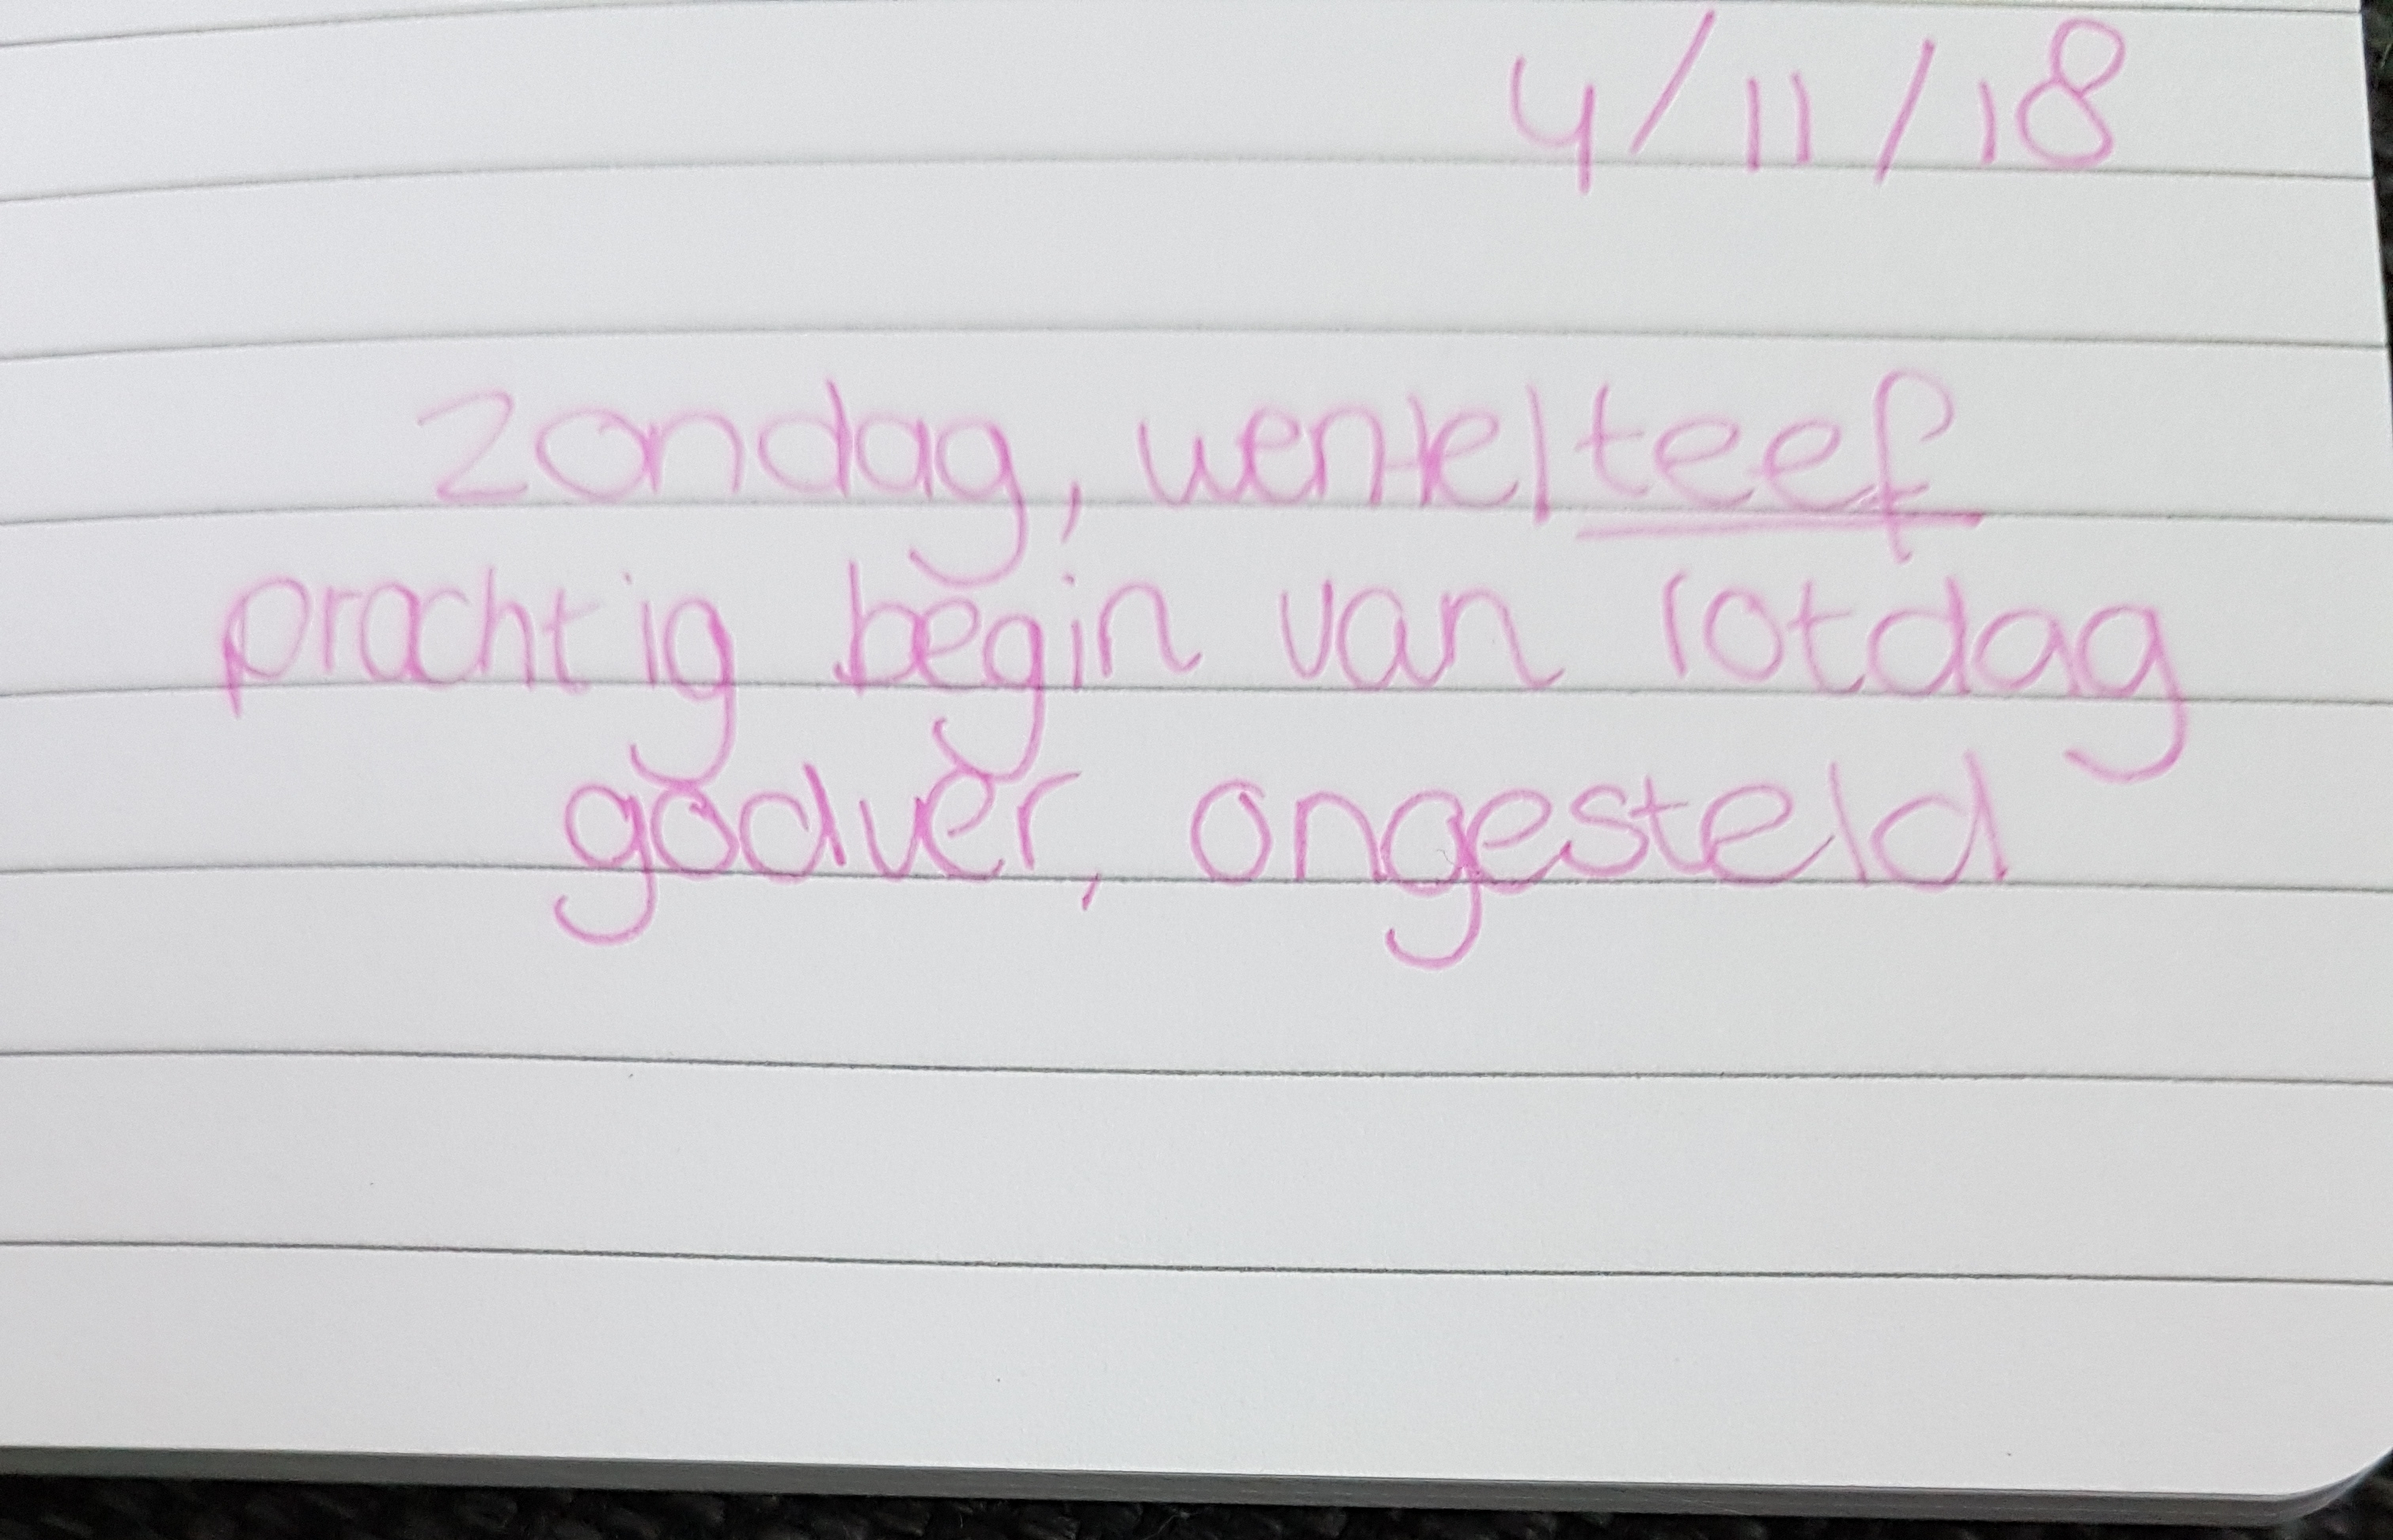 4/11/18
zondag, wentelteef
prachtig begin van rotdag
godver, ongesteld